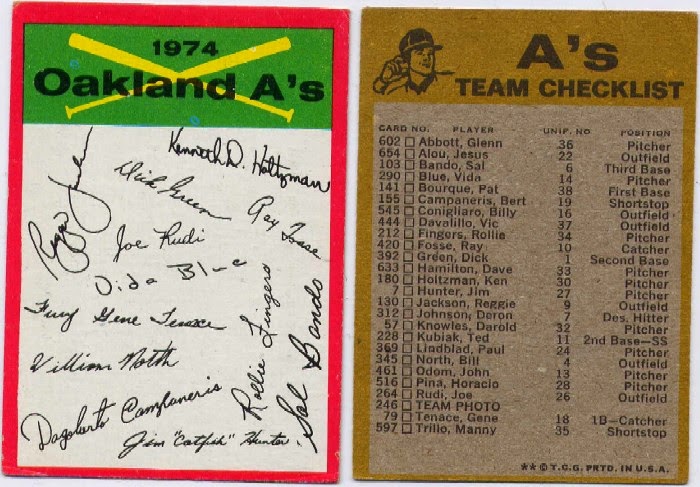 1974
Oakland A's
Kenneth D. Holtzman
Dick Green
Ray Fosse
Reggie Jackson
Joe Rudi
Vida Blue
Fury Gene Tenace
William North
Rollie Fingers
Sal Bando
Dagoberto Campaneris
Jim "Catfish" Hunter
A's
TEAM CHECKLIST
CARD NO. PLAYER UNIF. NO POSITION
602 Abbott, Glenn 36 Pitcher
654 Alou, Jesus 22 Outfield
103 Bando, Sal 6 Third Base
290 Blue, Vida 14 Pitcher
141 Bourque, Pat 38 First Base
155 Campaneris, Bert 19 Shortstop
545 Conigliaro, Billy 16 Outfield
444 Davalillo, Vic 37 Outfield
212 Fingers, Rollie 34 Pitcher
420 Fosse, Ray 10 Catcher
392 Green, Dick 1 Second Base
633 Hamilton, Dave 33 Pitcher
180 Holtzman, Ken 30 Pitcher
7 Hunter, Jim 27 Pitcher
130 Jackson, Reggie 9 Outfield
312 Johnson, Deron 7 Des. Hitter
57 Knowles, Darold 32 Pitcher
228 Kubiak, Ted 11 2nd Base-SS
369 Lindblad, Paul 24 Pitcher
345 North, Bill 4 Outfield
461 Odom, John 13 Pitcher
516 Pina, Horacio 28 Pitcher
264 Rudi, Joe 26 Outfield
246 TEAM PHOTO
79 Tenace, Gene 18 1B-Catcher
597 Trillo, Manny 35 Shortstop
** © T.C.G. PRTD. IN U.S.A.